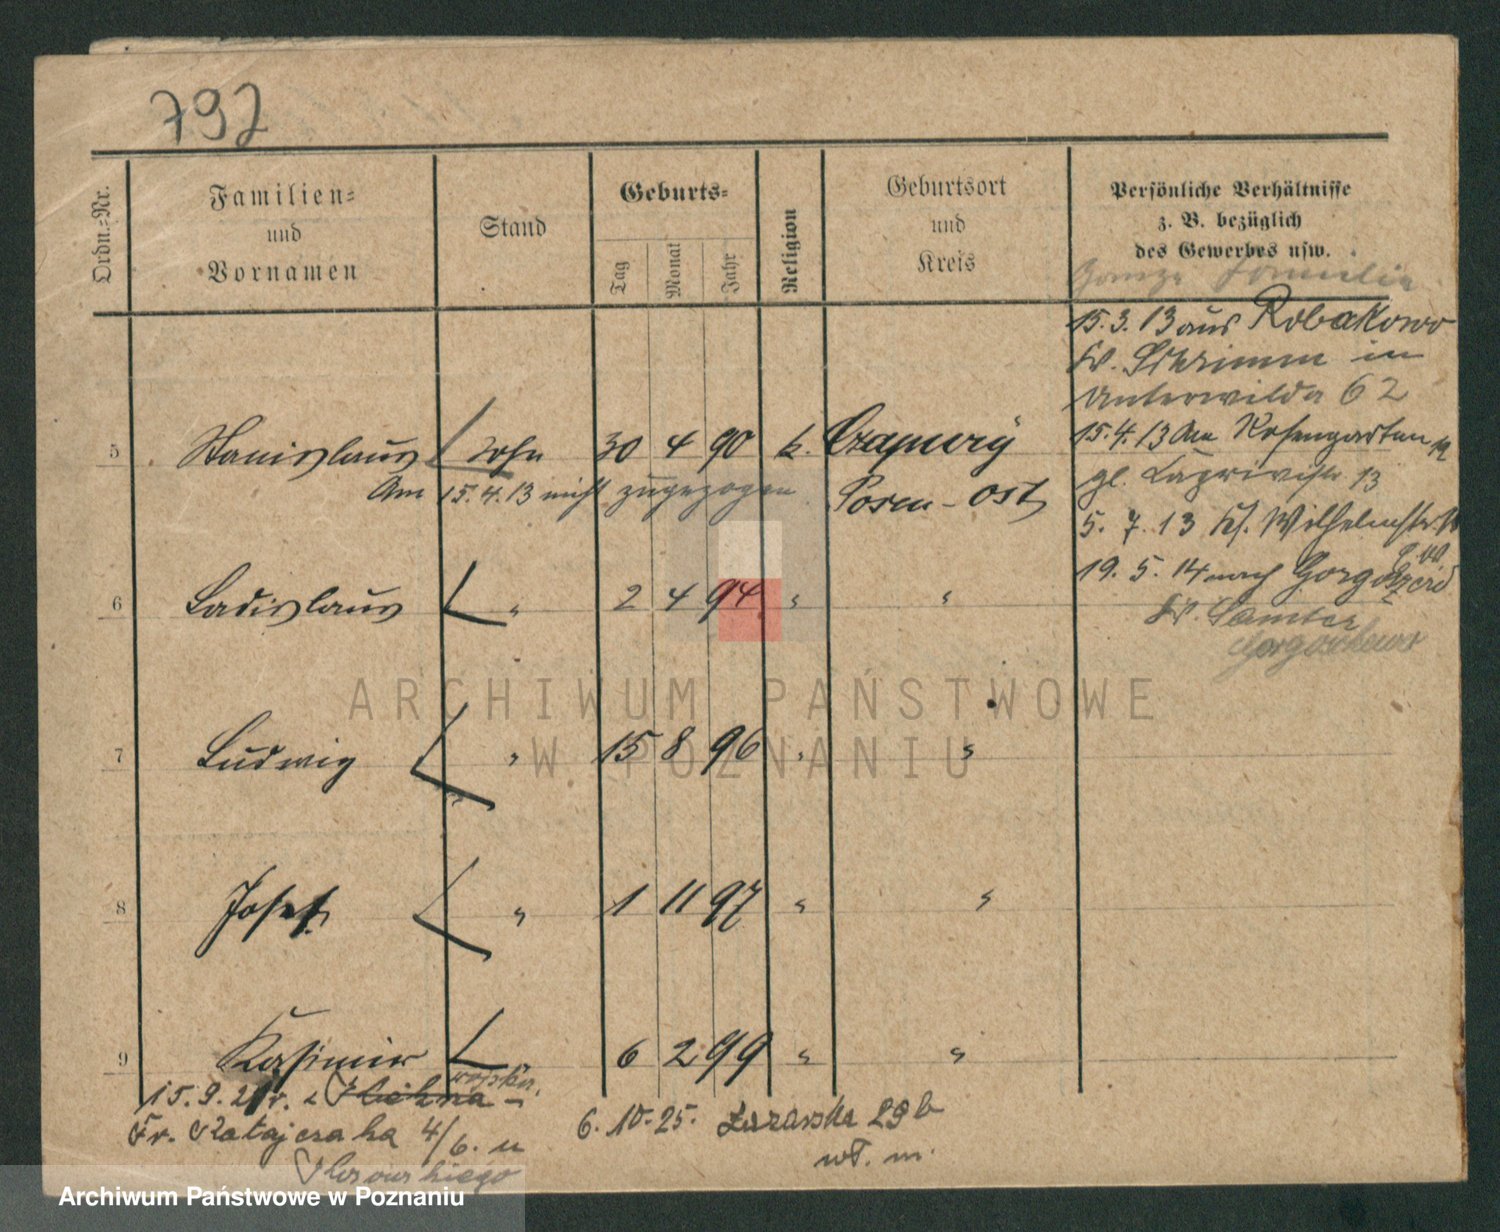 797
Ordn.-Nr.
Familien-
und
Vornamen
Stand
Geburts-
Tag
Monat
Jahr
Religion
Geburtsort
und
Kreis
Persönliche Verhältnisse
z. B. bezüglich
des Gewerbes usw.
Ganze Familie
15.3.13 aus Robakowo
Kr. Schrimm in
Unterwilda 62
15.4.13 Am Rosengarten
13
5. 7. 13 Wilhelmstr.
19. 5. 14 nach
Kr. Samter
5 Stanislaus Sohn 30 4 90 k. Czapury
Am 15.4.13 nicht zugezogen Posen-Ost
6 Ladislaus " 2 4 94 " "
7 Ludwig " 15 8 96 " "
8 Josef " 1 11 97 " "
9 Kasimir 6 2 99 " "
15.9.21
Fr. Ratajczaka 4/6. u
6.10.25. 29b
wł. m.
ARCHIWUM PAŃSTWOWE
W POZNANIU
Archiwum Państwowe w Poznaniu